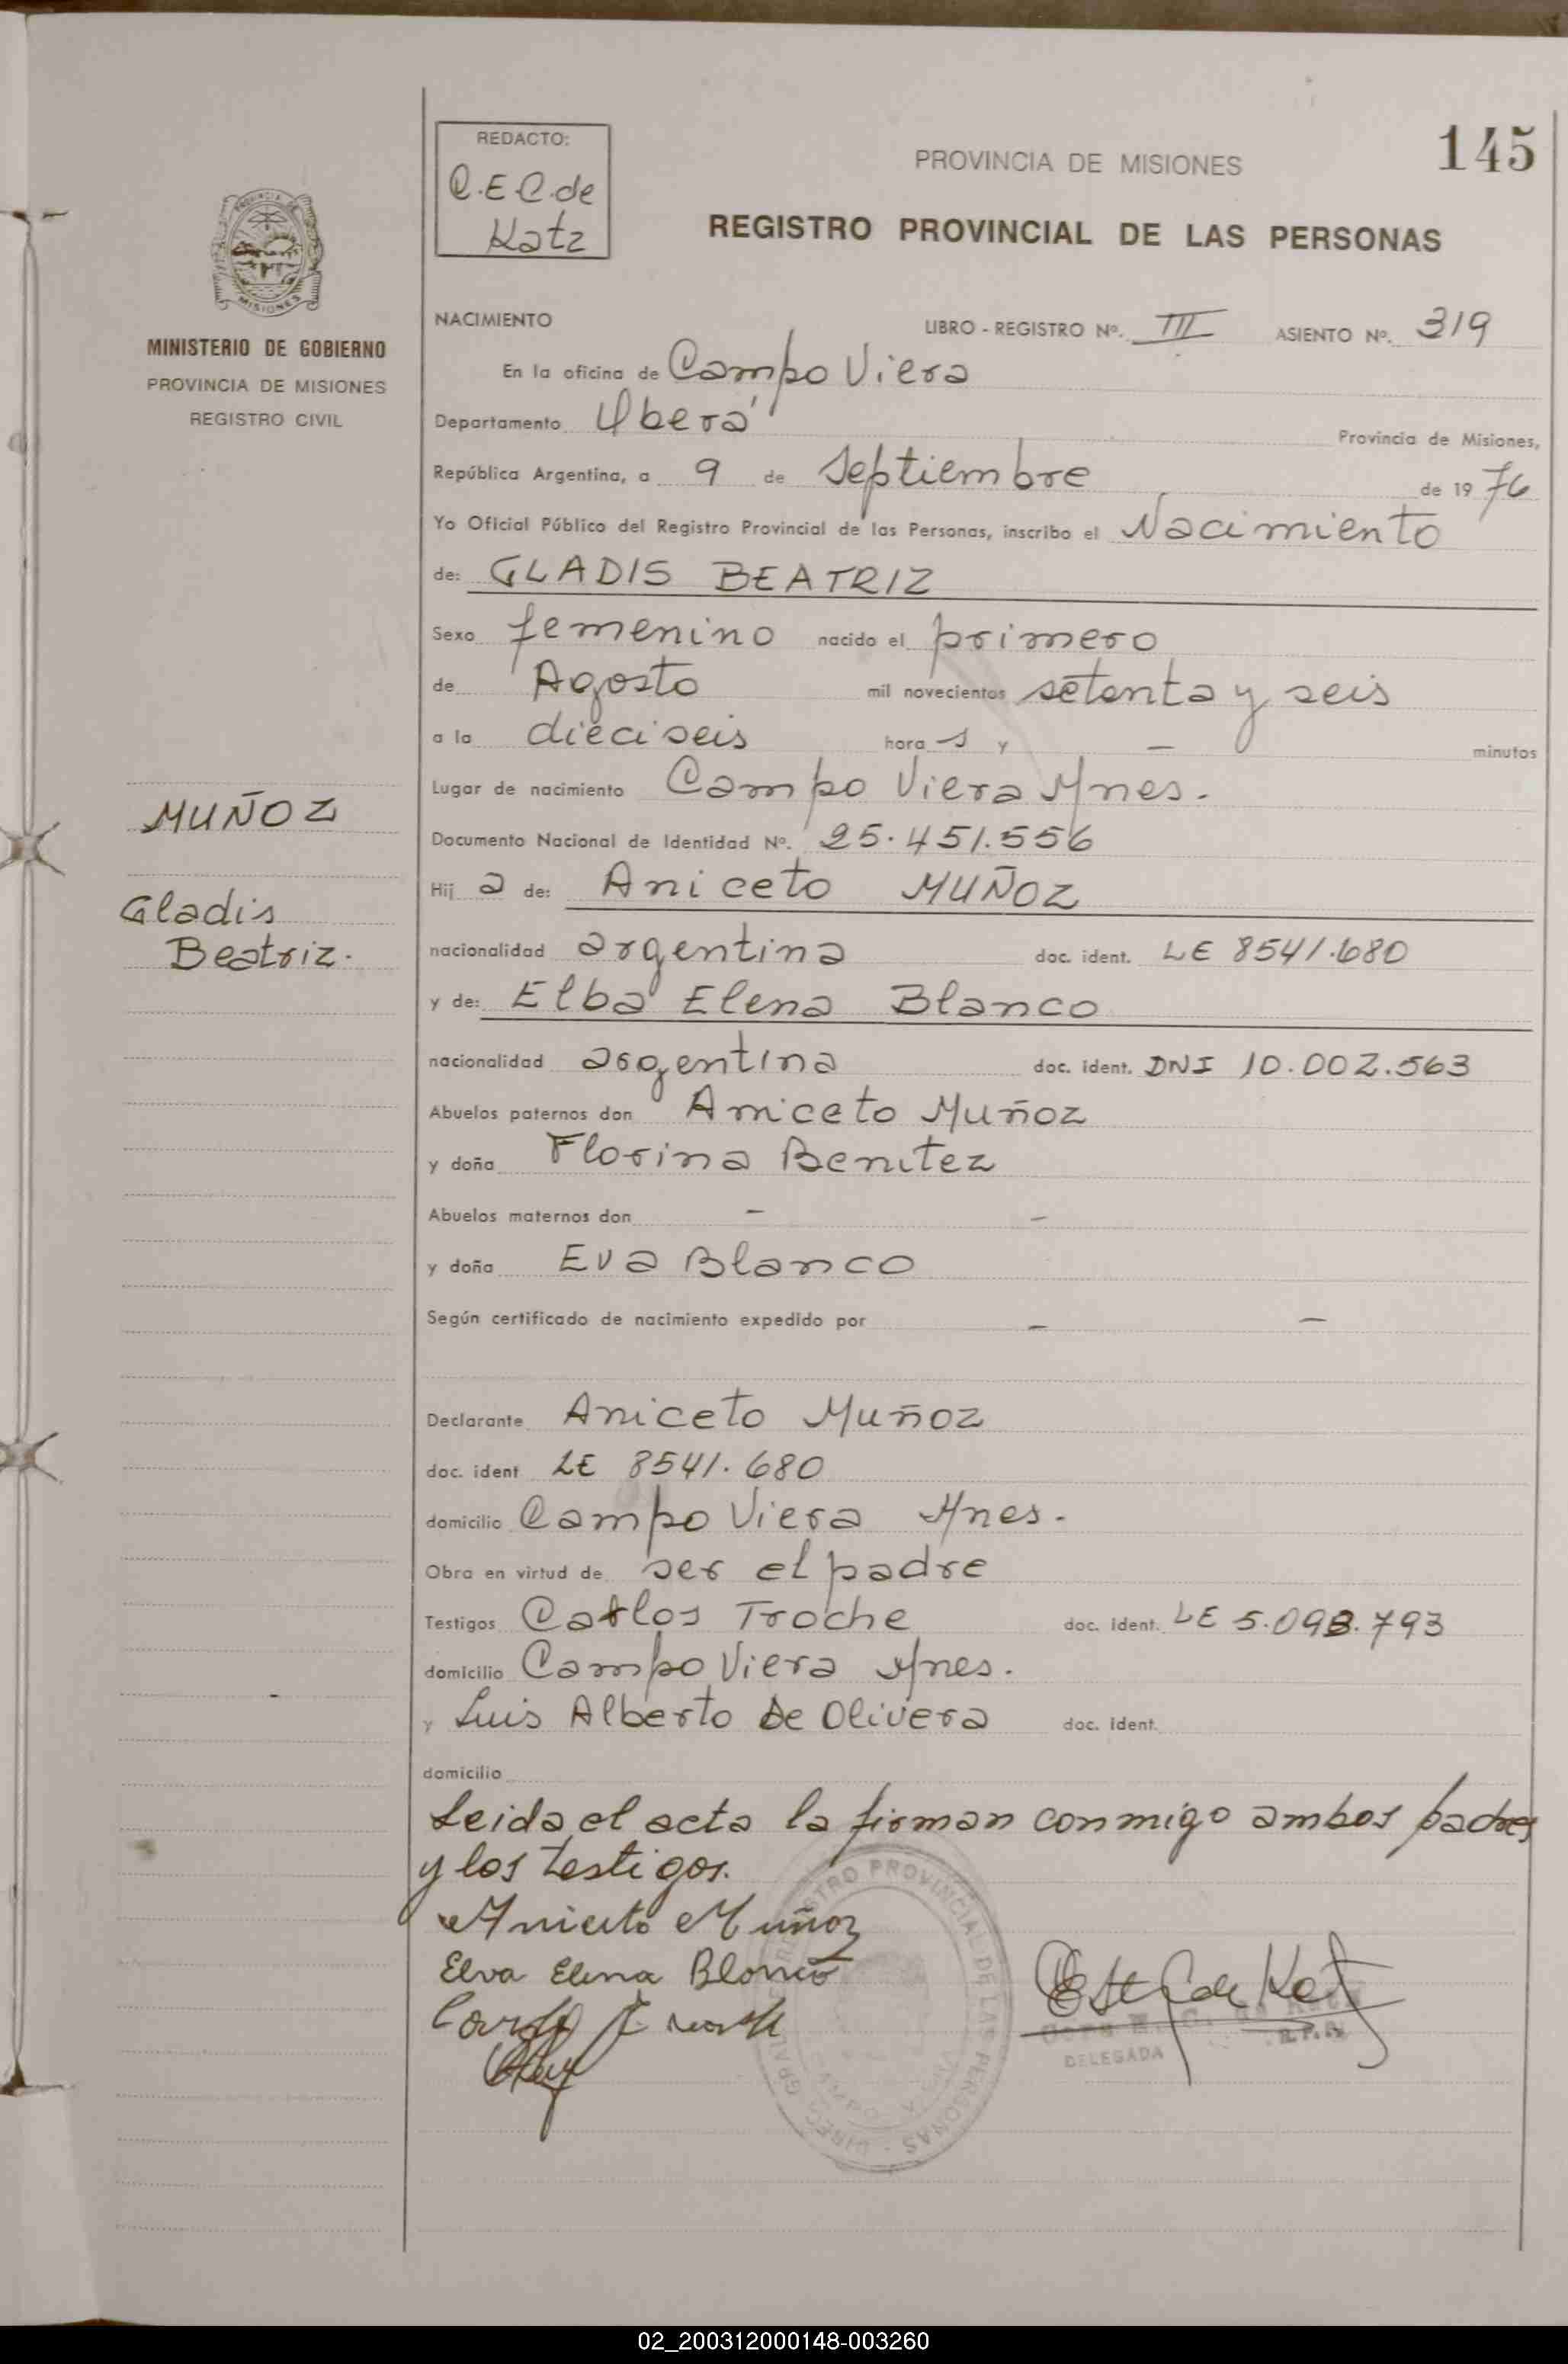 145
REDACTO:
C.E.C. de
Katz
PROVINCIA DE MISIONES
REGISTRO PROVINCIAL DE LAS PERSONAS
MISIONES
MINISTERIO DE GOBIERNO
PROVINCIA DE MISIONES
REGISTRO CIVIL
NACIMIENTO LIBRO - REGISTRO Nº. III ASIENTO Nº. 319
En la oficina de Campo Viera
Departamento Oberá Provincia de Misiones,
República Argentina, a 9 de Septiembre de 1976
Yo Oficial Público del Registro Provincial de las Personas, inscribo el Nacimiento
de: GLADIS BEATRIZ
Sexo femenino nacido el primero
de Agosto mil novecientos setenta y seis
a la dieciseis hora s y — minutos
Lugar de nacimiento Campo Viera Mnes.
MUÑOZ
Gladis
Beatriz.
Documento Nacional de Identidad Nº. 25.451.556
Hij a de: Aniceto MUÑOZ
nacionalidad argentina doc. ident. LE 8541.680
y de: Elba Elena Blanco
nacionalidad argentina doc. ident. DNI 10.002.563
Abuelos paternos don Aniceto Muñoz
y doña Florina Benitez
Abuelos maternos don — —
y doña Eva Blanco
Según certificado de nacimiento expedido por — —
Declarante Aniceto Muñoz
doc. ident LE 8541.680
domicilio Campo Viera Mnes.
Obra en virtud de ser el padre
Testigos Carlos Troche doc. ident. LE 5.098.793
domicilio Campo Viera Mnes.
y Luis Alberto De Olivera doc. ident.
domicilio
Leida el acta la firman conmigo ambos padres
y los testigos.
Aniceto Muñoz
Elva Elena Blanco
DELEGADA
REGISTRO PROVINCIAL DE LAS PERSONAS
CAMPO VIERA
02_200312000148-003260